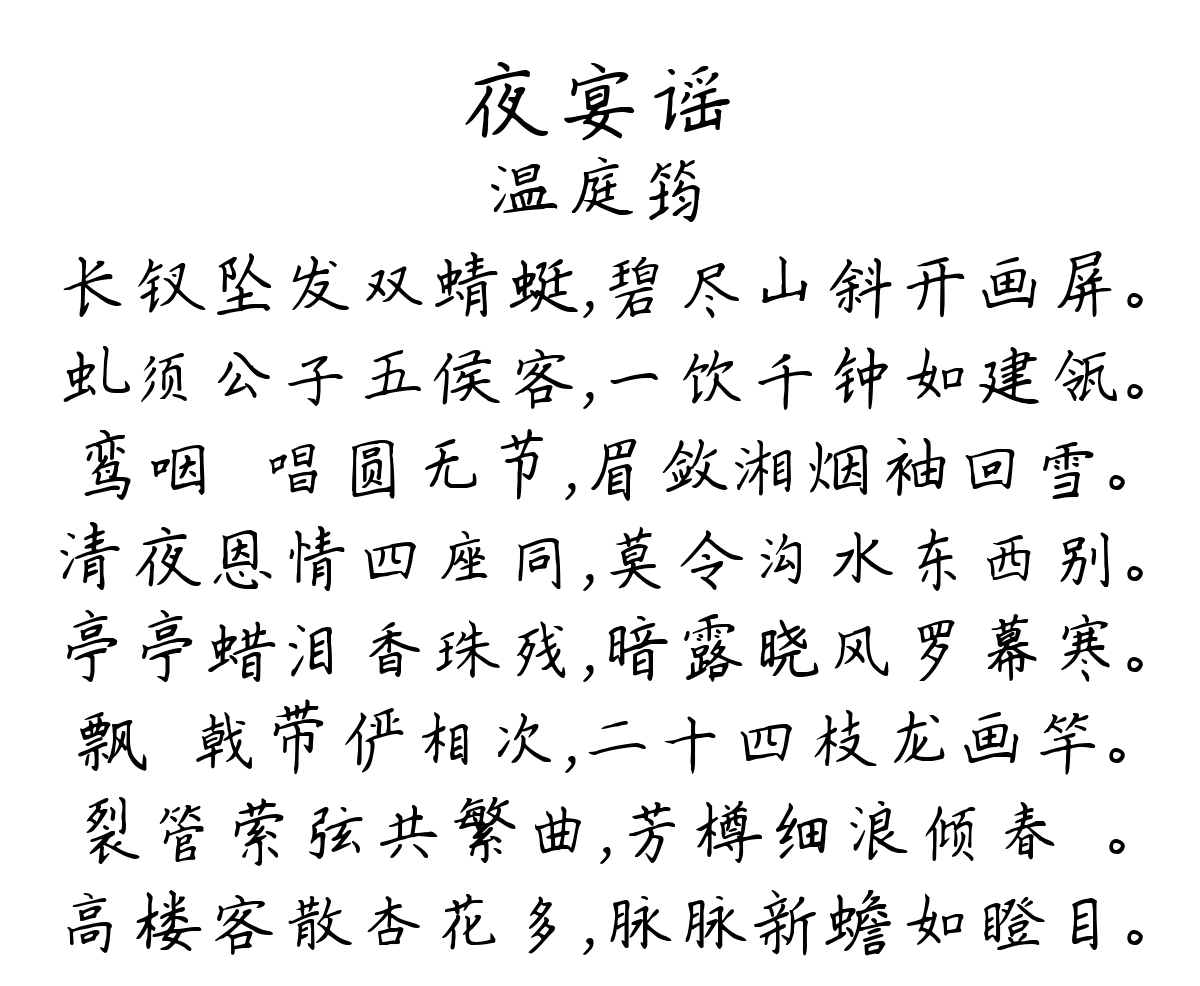 夜宴谣
温庭筠
长钗坠发双蜻蜓,碧尽山斜开画屏。
虬须公子五侯客,一饮千钟如建瓴。
鸾咽 唱圆无节,眉敛湘烟袖回雪。
清夜恩情四座同,莫令沟水东西别。
亭亭蜡泪香珠残,暗露晓风罗幕寒。
飘 戟带俨相次,二十四枝龙画竿。
裂管萦弦共繁曲,芳樽细浪倾春 。
高楼客散杏花多,脉脉新蟾如瞪目。